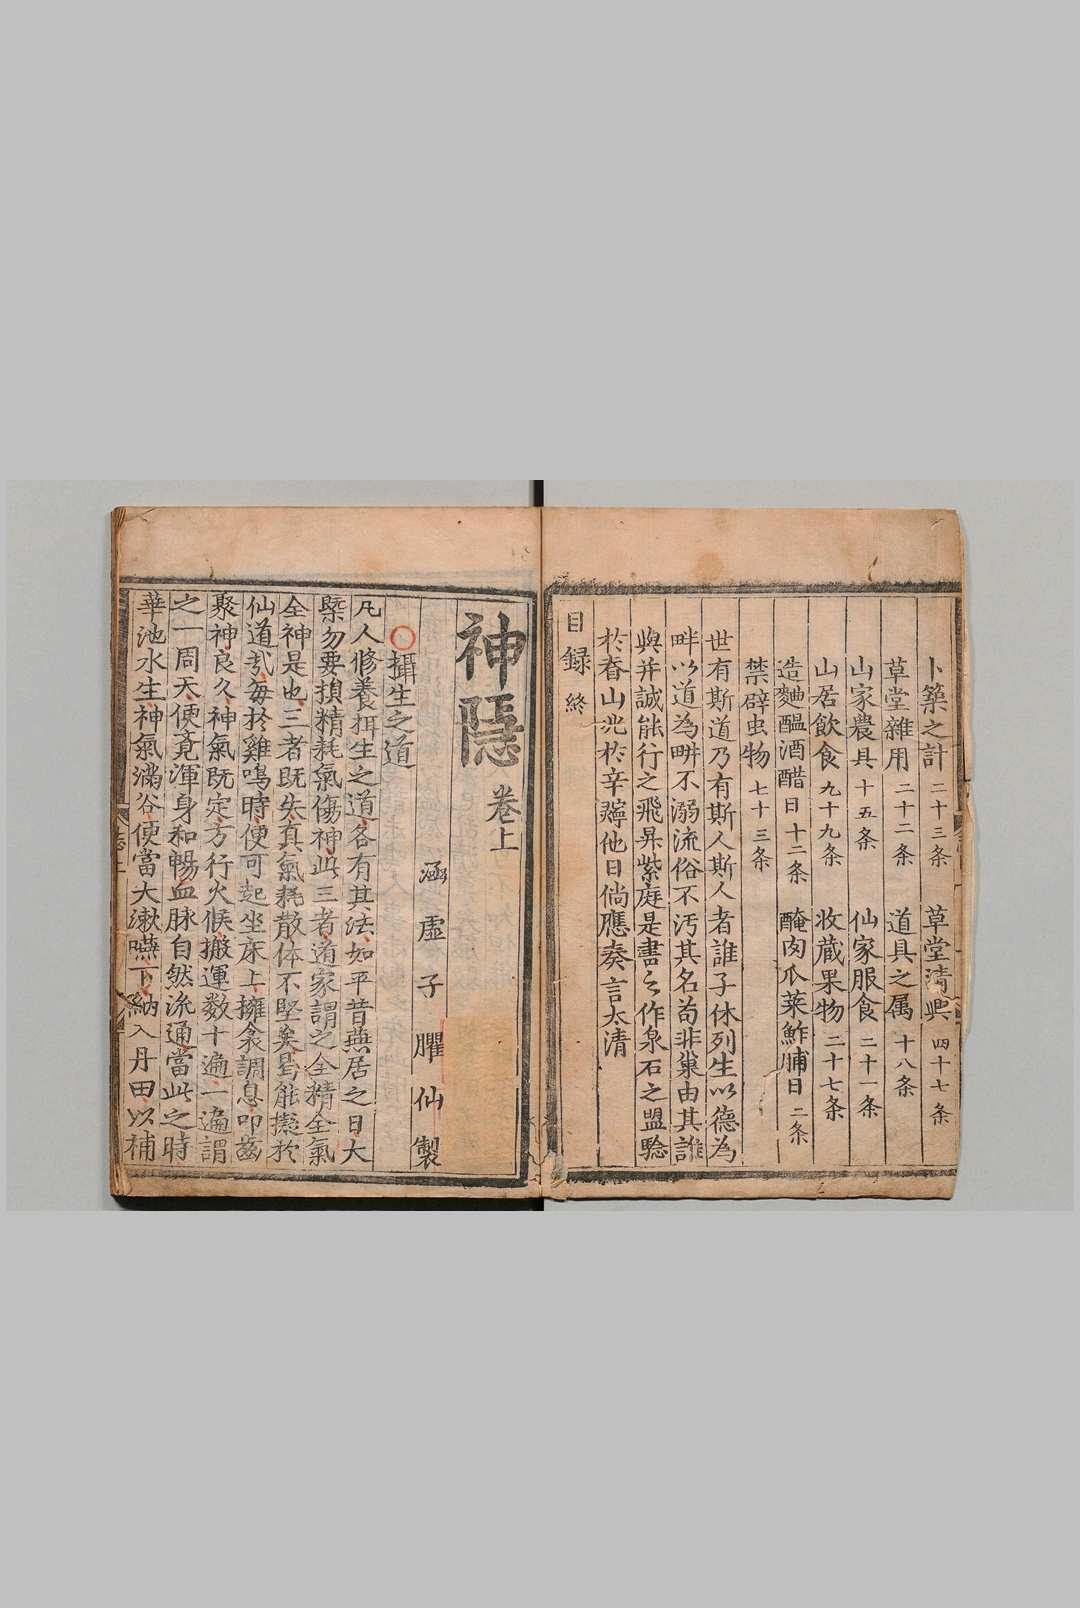 卜築之計 二十三条 草堂清興 四十七条
草堂雜用 二十二条 道具之属 十八条
山家農具 十五条 仙家服食 二十一条
山居飲食 九十九条 收蔵果物 二十七条
造麯醖酒醋日 十二条 醃肉瓜菜鮓脯日 二条
禁辟虫物 七十三条
世有斯道乃有斯人斯人者誰子休列生以德為
畔以道為畊不溺流俗不汚其名苟非巢由其誰
與并誠能行之飛昇紫庭是書之作泉石之盟驗
於眷山兆於辛
他日倘應奏言太清
目録 終
神隱 卷上
涵虛子臞仙製
○攝生之道
凡人修養摂生之道各有其法如平昔燕居之日大
槩勿要損精耗氣傷神此三者道家謂之全精全氣
全神是也三者既失真氣耗散体不堅矣曷能擬於
仙道㢤每於雞鳴時便可起坐床上擁衾調息叩齒
聚神良久神氣既定方行火候搬運数十遍一遍謂
之一周天便覔渾身和暢血脉自然流通當此之時
華池水生神氣滿谷便當大漱嚥下納入丹田以補